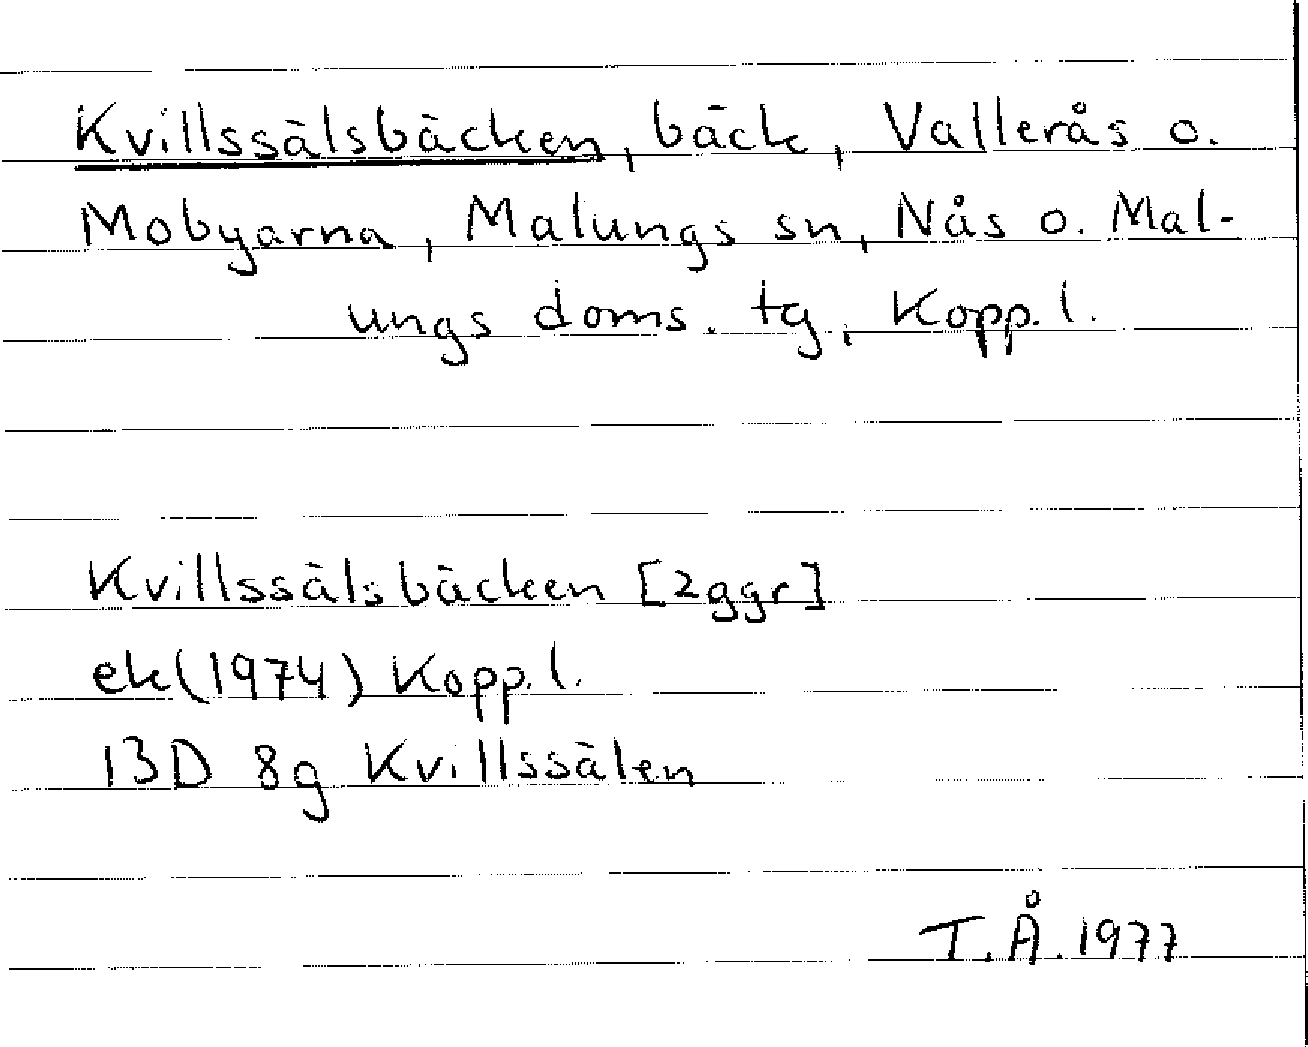 Kvillssälsbäcken, bäck, Vallerås o.
Mobyarna, Malungs sn, Nås o. Mal-
ungs doms. tg, Kopp. l.
Kvillssälsbäcken [2ggr]
ek (1974) Kopp. l.
13D 8g Kvillssälen
T. Å. 1977